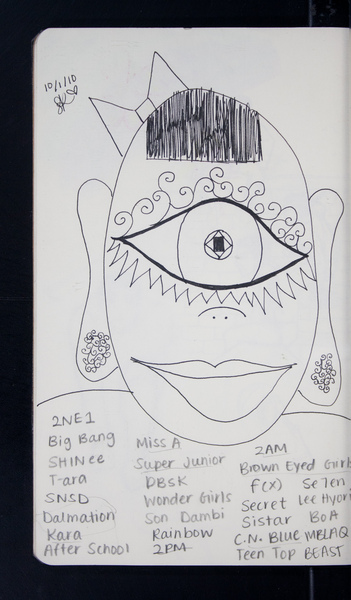 10/1/10
2NE1
Big Bang
SHINee
T-ara
SNSD
Dalmation
Kara
After School
Miss A
Super Junior
DBSK
Wonder Girls
Son Dambi
Rainbow
2PM
2AM
Brown Eyed Girls
f(x) Se7en
Secret Lee Hyori
Sistar BoA
C.N. Blue MBLAQ
Teen Top BEAST